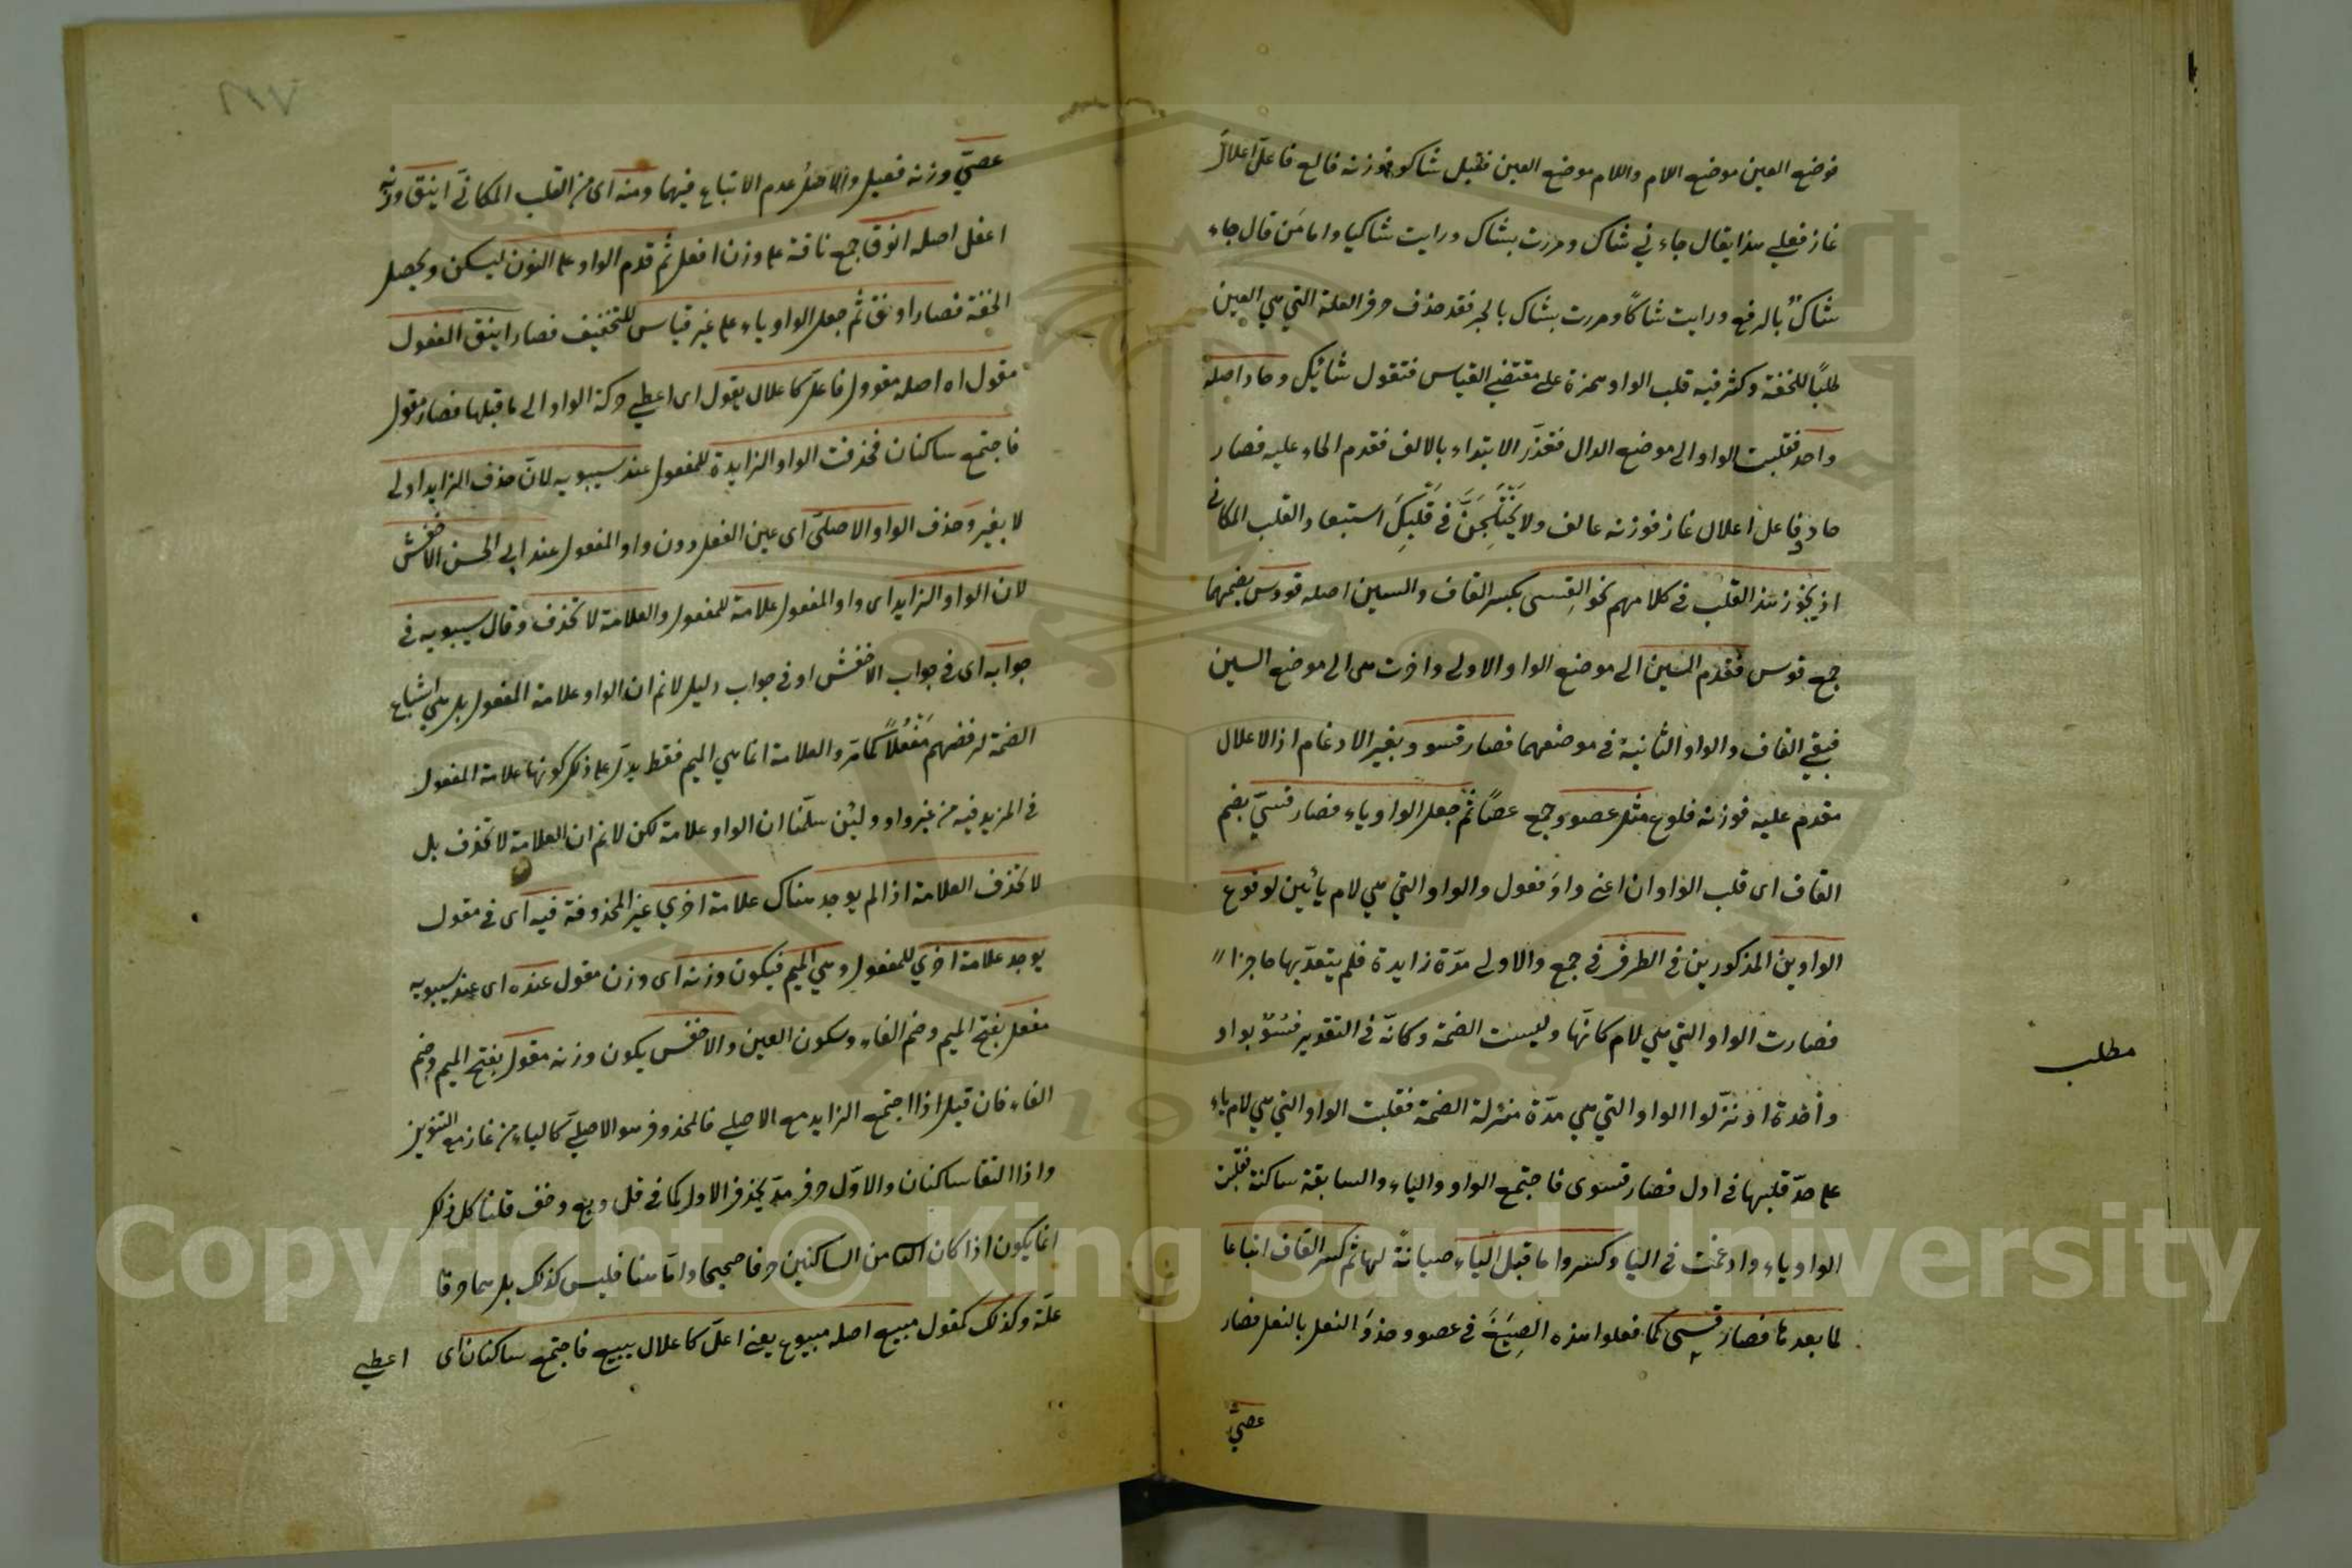 فوضع العين موضع اللام واللام موضع العين فقيل شاكو فوزنه فالع فاعلّ اعلالَ
غاز فعلي هذا يقال جاءني شاك ومررت بشاك ورايت شاكيا واما مَن قال جاء
شاكٌ بالرفع ورايت شاكًا ومررت بشاك بالجر فقد حذف حرف العلة التي هي العين
طلبًا للخفة وكثر فيه قلب الواو همزة على مقتضي القياس فتقول شائيك وحاد اصله
واحد فقلبت الواو الى موضع الدال فتعذّر الابتداء بالالف فقدم الحاء عليه فصار
حادو فاعل اعلال غاز فوزنه عالف ولا يَخْتَلِجَنَّ في قَلْبِكَ استبعاد القلب المكاني
اذ يجوز هذا القلب في كلامهم نحو القِسى بكسر القاف والسين اصله قووس بضمهما
جمع قوس فقدم السين الى موضع الواو الاولى واخرت هى الى موضع السين
فبقي القاف والواو الثانية في موضعهما فصار قسوو بغير الادغام اذ الاعلال
مقدم عليه فوزنه فلوع مثل عصوو جمع عصًا ثم جعل الواو ياء فصار قسيّ بضم
القاف اى قلب الواوان اعنى واوَ فعول والواو التي هي لام يائين لوقوع
الواوين المذكورين في الطرف في جمع والاولى مدّة زايدة فلم يتعدّ بها حاجزا
فصارت الواو التي هي لام كانّها وليست الضمة وكانّه في التقدير قسُوٌ بواو
واحدة او نزّلوا الواو التي هي مدّة منزلة الضمة فقلبت الواو التي هي لام ياء
على حدّ قلبها في ادل فصار قسوى فاجتمع الواو والياء والسابقة ساكنة فقلبت
الواو ياء وادغمت في اليا وكسروا ما قبل الياء صيانةً لها ثم كسر القاف اتباعا
لما بعدها فصار قسى كما فعلوا هذه الصِيَغَ في عصوو حذوَ النعل بالنعل فصار
عصيّ
مطلب
عصيّ وزنه فعيل والاصل عدم الاتباع فيهما ومنه اى من القلب المكانّي اينق وزنه
اعفل اصله انوق جمع ناقة على وزن افعل ثم قدم الواو على النون ليسكن ويحصل
الخفة فصار اونق ثم جعل الواو ياء على غير قياس للتخفيف فصار اينق المفعول
مقول اه اصله مقوول فاعلّ كاعلال يقول اى اعطي حركة الواو الى ما قبلها فصار مقول
فاجتمع ساكنان فحذفت الواو الزايدة للمفعول عند سيبويه لانّ حذف الزايد اولى
لا بغير وحذف الواو الاصليّ اى عين الفعل دون واو المفعول عند ابى الحسن الاخفش
لان الواو الزايد اى واو المفعول علامة للمفعول والعلامة لا تحذف وقال سيبويه في
جوابه اى في جواب الاخفش او في جواب دليل لانم ان الواو علامة المفعول بل هي اشباع
الضمة لرفضهم مَفْعُلاً كما مرّ والعلامة انما هي الميم فقط يدلّ على ذلك كونها علامة المفعول
في المزيد فيه من غير واو ولئن سلّمنا ان الواو علامة لكن لانم ان العلامة لا تحذف بل
لا تحذف العلامة اذا لم يوجد هناك علامة اخري غير المحذوفة فيه اى في مقول
يوجد علامة اخري للمفعول وهي الميم فيكون وزنه اى وزن مقول عنده اى عند سيبويه
مفعل بفتح الميم وضم الفاء وسكون العين والاخفش يكون وزنه مقول بفتح الميم وضم
الفاء فان قيل اذا اجتمع الزايد مع الاصلي فالمحذوف هو الاصليّ كالياء من غاز مع التنوين
واذا التقا ساكنان والاوّل حرف مدّ يحذف الاول كما في قل وبع وخف قلنا كل ذلك
انما يكون اذا كان الثا من الساكنين حرفا صحيحا وامّا هنا فليس كذلك بل هما حرفا
علّة وكذلك كمقول مبيع اصله مبيوع يعنى اعلّ كاعلال يبيع فاجتمع ساكنان اى
اعطي
Copyright © King Saud University